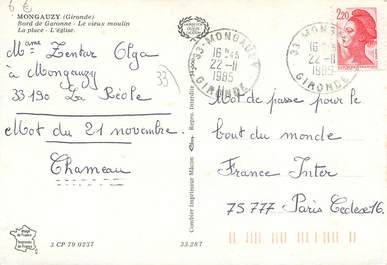 6 €
MONGAUZY (Gironde)
Bord de Garonne - Le vieux moulin
La place - L'église.
Mme Zentar Olga
à Mongauzy
33190 La Réole
33
Mot du 21 novembre.
Chameau
3 CP 79 0237
33.287
Combier Imprimeur Mâcon
Repos. Interdite
33-MONGAUZY
16 H45
22-11
1985
GIRONDE
33-MONGAUZY
16 H45
22-11
1985
GIRONDE
2,20
Mot de passe pour le
bout du monde
France Inter
75777 Paris Cedex 16.